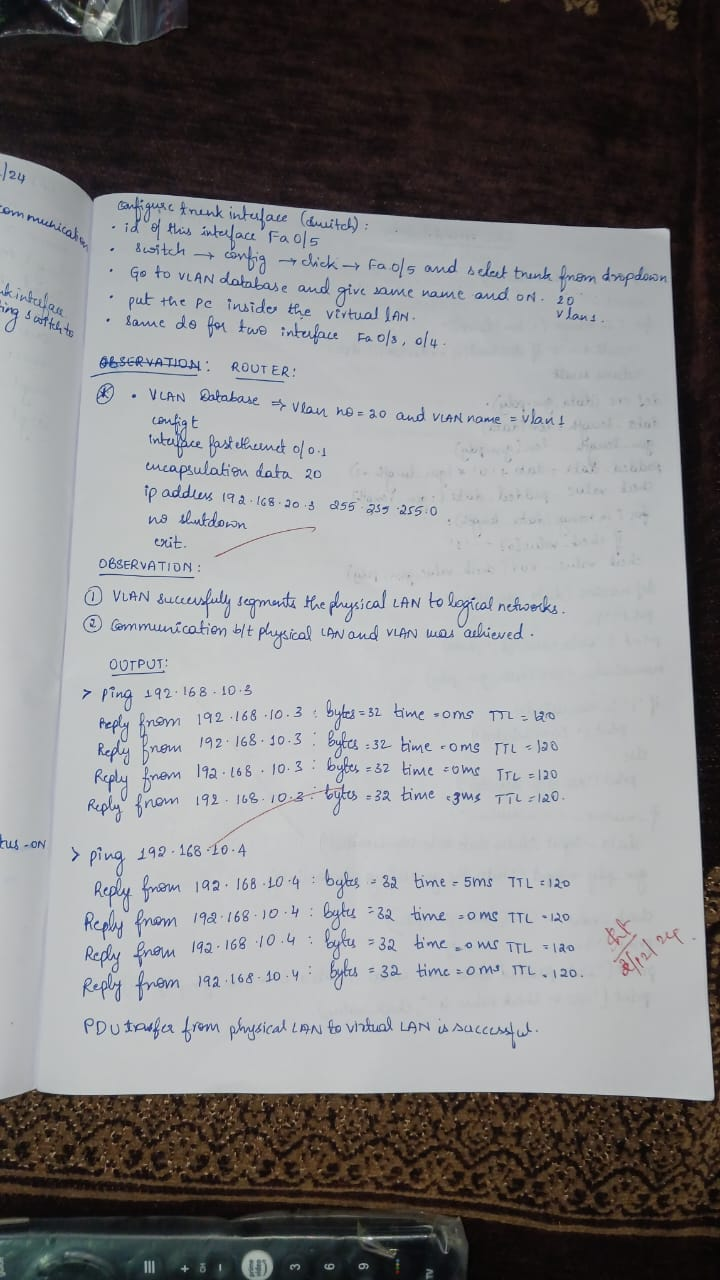 /24
communication
k interface
ing switch to
tus - ON
configure trunk interface (switch) :
• id of this interface Fa 0/5
• switch → config → click → Fa 0/5 and select trunk from dropdown
• Go to VLAN database and give same name and on. 20
vlan1.
• put the PC insider the virtual LAN.
• same do for two interface Fa 0/3, 0/4.
OBSERVATION: ROUTER:
* • VLAN Database ⇒ Vlan no = 20 and VLAN name = vlan1
config t
interface fastethernet 0/0.1
encapsulation data 20
ip address 192.168.20.3 255.255.255.0
no shutdown
exit.
OBSERVATION:
① VLAN successfuly segments the physical LAN to logical networks.
② communication b/t physical LAN and VLAN was achieved.
OUTPUT:
> ping 192.168.10.3
Reply from 192.168.10.3 : bytes = 32 time = 0ms TTL = 120
Reply from 192.168.10.3 : bytes = 32 time = 0ms TTL = 120
Reply from 192.168.10.3 : bytes = 32 time = 0ms TTL = 120
Reply from 192.168.10.3 : bytes = 32 time = 3ms TTL = 120.
> ping 192.168.10.4
Reply from 192.168.10.4 : bytes = 32 time = 5ms TTL = 120
Reply from 192.168.10.4 : bytes = 32 time = 0ms TTL = 120
Reply from 192.168.10.4 : bytes = 32 time = 0ms TTL = 120
Reply from 192.168.10.4 : bytes = 32 time = 0ms. TTL = 120.
2/12/24
PDU transfer from physical LAN to virtual LAN is successful.
CH
prime video
3
6
9
TV